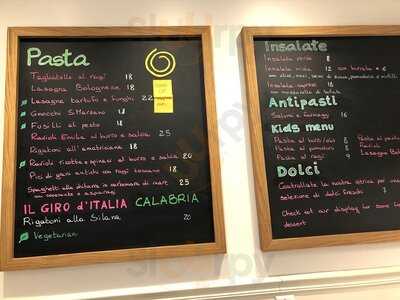 Pasta
Tagliatelle al ragù 18
Lasagna Bolognese 18
Lasagna tartufo e funghi 22
Gnocchi S. Marzano 18
Fusilli al pesto 18
Ravioli Emilia al burro e salvia 25
Rigatoni all'amatriciana 18
Ravioli ricotta e spinaci al burro e salvia 20
Pici di grani antichi con ragù toscano 18
Spaghetti alla chitarra in carbonara di mare 25
IL GIRO d'ITALIA CALABRIA
Rigatoni alla Silana 20
Vegetarian
Insalate
Insalata verde 8
Insalata mista 12 con burrata + 6
Insalata caprese 18
con mozzarella di bufala
Antipasti
Salumi e formaggi 16
Kids menu
Pasta al burro/olio 8
Pasta al pomodoro 8
Pasta al ragù 9
Pasta al pesto
Ravioli
Lasagna Bolo
Dolci
Controllate la nostra vetrina per una
selezione di dolci freschi 7
Check out our display for some
dessert